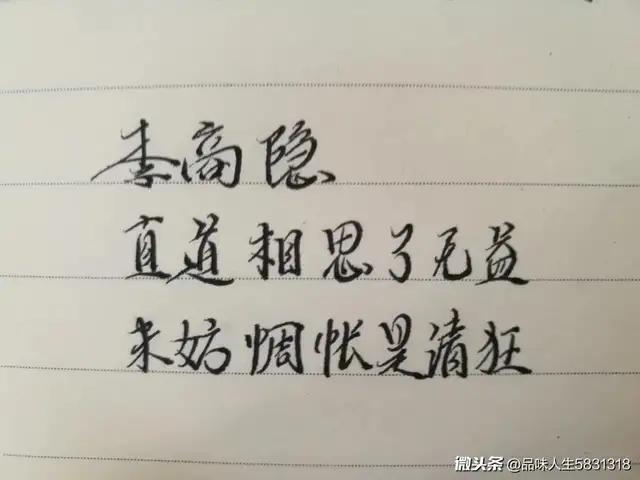 李商隐
直道相思了无益
未妨惆怅是清狂
微头条@品味人生5831318